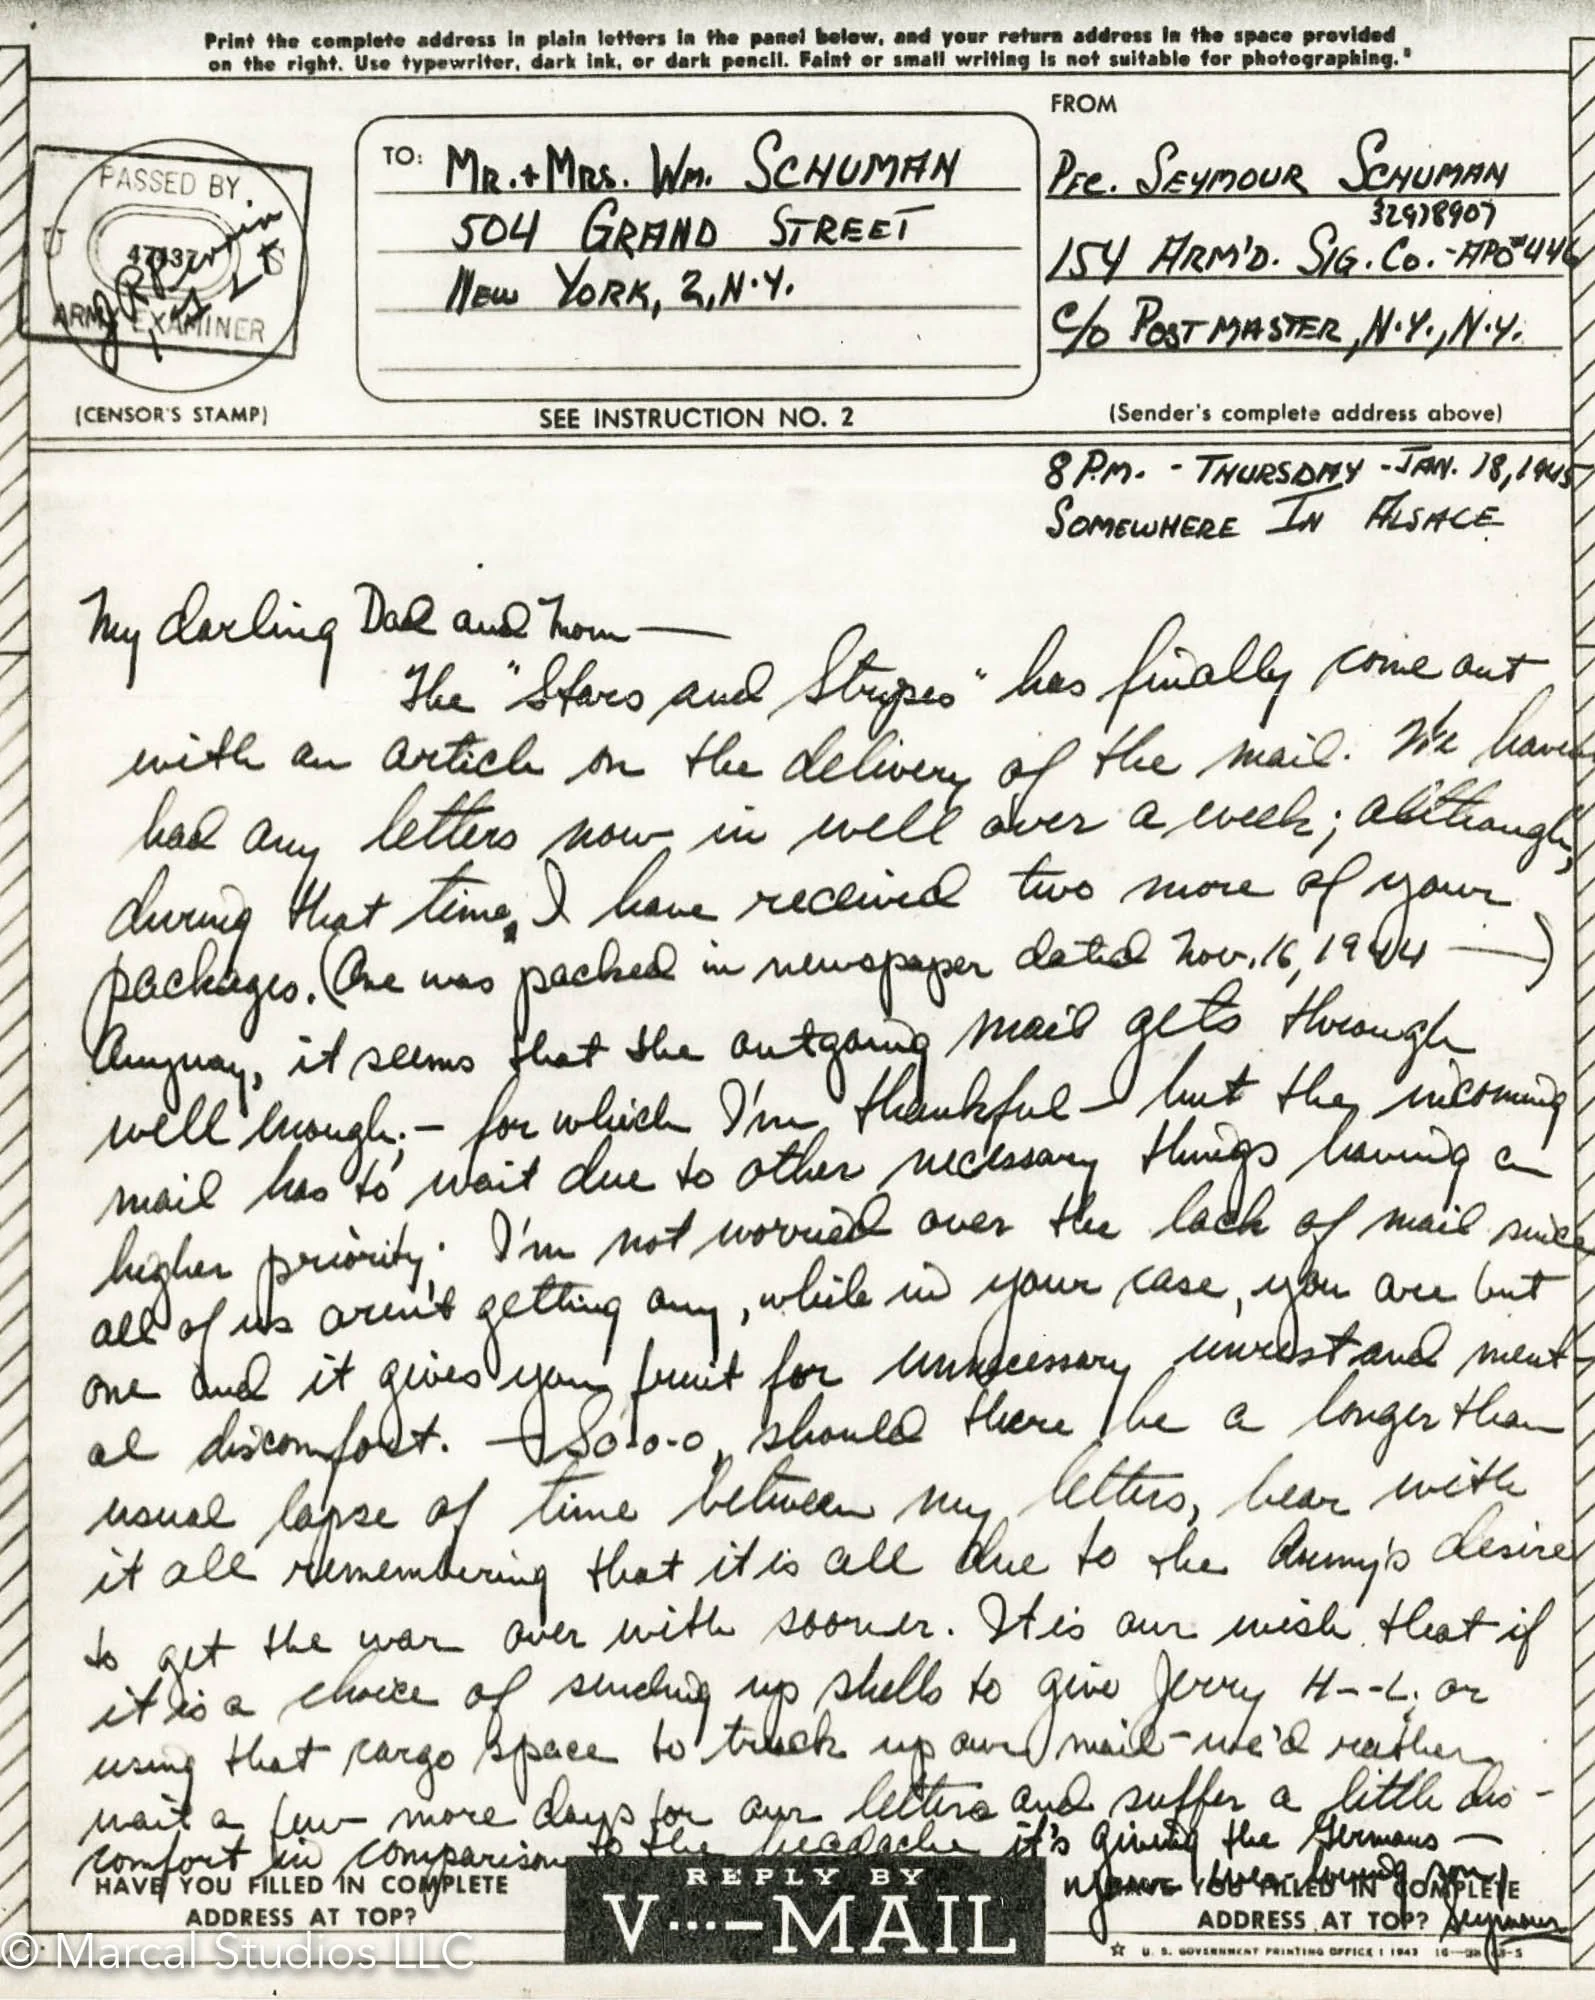 Print the complete address in plain letters in the panel below, and your return address in the space provided
on the right. Use typewriter, dark ink, or dark pencil. Faint or small writing is not suitable for photographing.
PASSED BY
U S
ARMY EXAMINER
(CENSOR'S STAMP)
TO: MR. + MRS. WM. SCHUMAN
504 GRAND STREET
NEW YORK, 2, N.Y.
SEE INSTRUCTION NO. 2
FROM
PFC. SEYMOUR SCHUMAN
32978907
154 ARM'D. SIG. CO. - APO #446
C/O POSTMASTER, N.Y., N.Y.
(Sender's complete address above)
8 P.M. - THURSDAY - JAN. 18, 1945
SOMEWHERE IN ALSACE
My darling Dad and Mom —
The "Stars and Stripes" has finally come out
with an article on the delivery of the mail. We haven't
had any letters now in well over a week; although,
during that time, I have received two more of your
packages. (One was packed in newspaper dated Nov. 16, 1944 —)
Anyway, it seems that the outgoing mail gets through
well enough; – for which I'm thankful – but the incoming
mail has to wait due to other necessary things having a
higher priority. I'm not worried over the lack of mail since
all of us aren't getting any, while in your case, you are but
one and it gives you fruit for unnecessary unrest and ment-
al discomfort. — So-o-o, should there be a longer than
usual lapse of time between my letters, bear with
it all remembering that it is all due to the Army's desire
to get the war over with sooner. It is our wish that if
it is a choice of sending up shells to give Jerry H--L, or
using that cargo space to truck up our mail – we'd rather
wait a few more days for our letters and suffer a little dis-
comfort in comparison to the headache it's giving the Germans —
Your ever loving son,
Seymour
HAVE YOU FILLED IN COMPLETE
ADDRESS AT TOP?
REPLY BY
V···—MAIL
HAVE YOU FILLED IN COMPLETE
ADDRESS AT TOP?
☆ U. S. GOVERNMENT PRINTING OFFICE : 1943
© Marcal Studios LLC